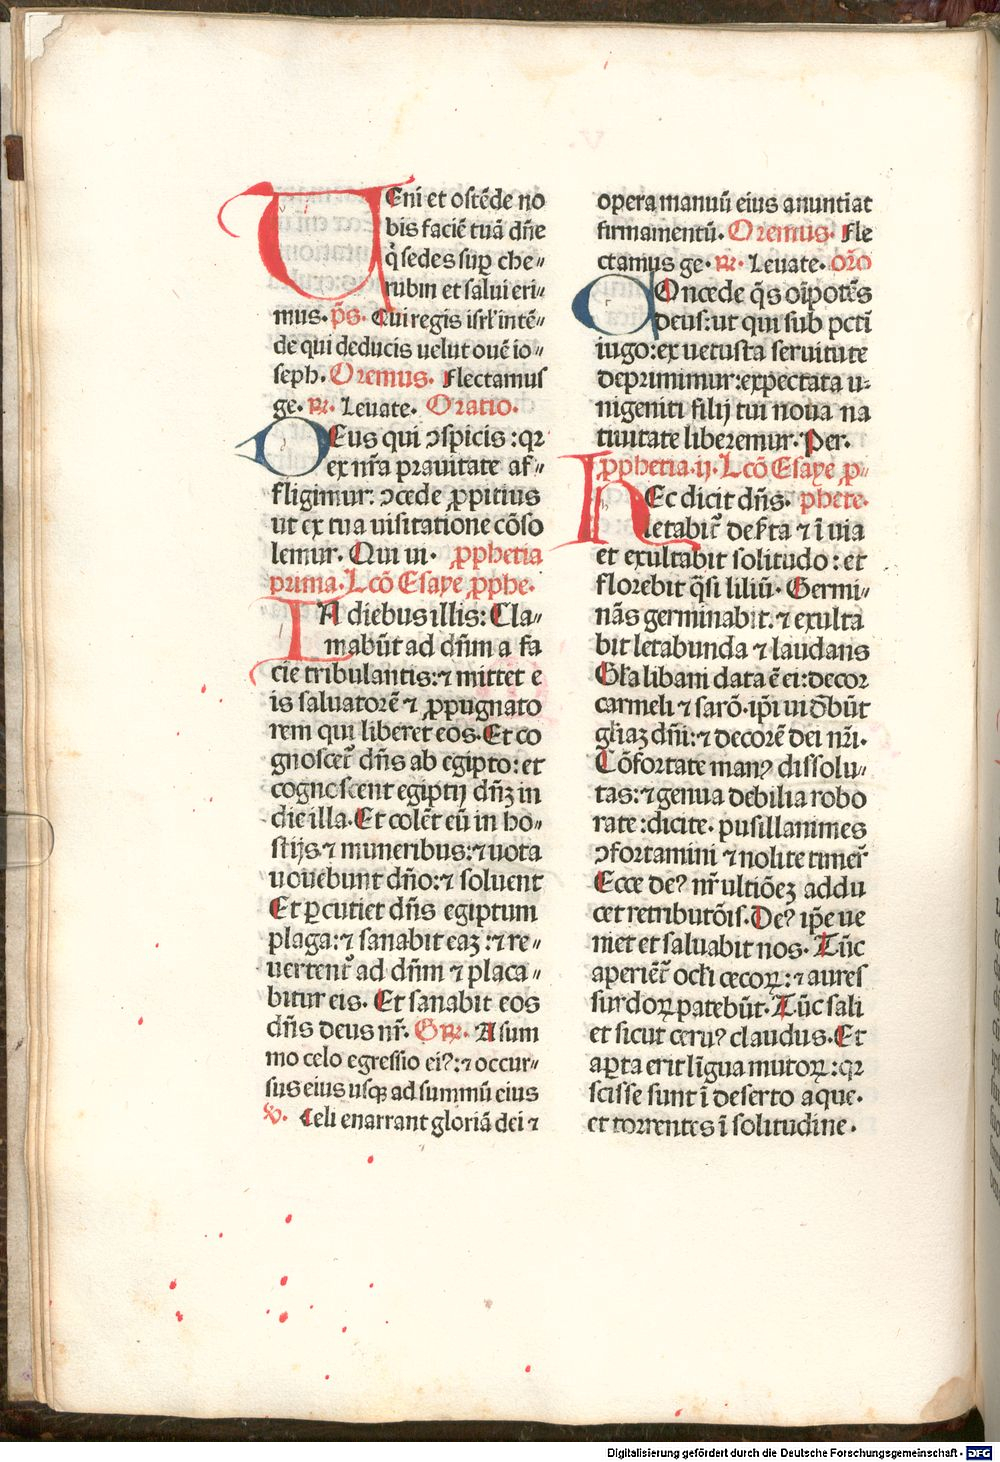 VEni et ostēde no
bis faciē tuā dn̄e
q̇ sedes suꝑ che〃
rubin et salui eri〃
mus. p̄s. Qui regis isrl' intē〃
de qui deducis uelut ouē io〃
seph. Oremus. Flectamus
ge. ꝶ. Leuate. Oratio.
DEus qui ↄspicis : qꝛ
ex nr̄a prauitate af〃
fligimur: ↄcede ꝓpitius
ut ex tua uisitatione cōso
lemur. Qui ui. ꝓphetia
prima. Lcō Esaye ꝓphe.
IN diebus illis: Cla〃
mabūt ad dn̄m a fa
cie tribulantis: ⁊ mittet e
is saluatorē ⁊ ꝓpugnato
rem qui liberet eos. Et co
gnoscet᷑ dn̄s ab egipto: et
cognoscent egiptij dn̄ꝫ in
die illa. Et colēt eū in ho〃
stijs ⁊ muneribus: ⁊ uota
uouebunt dn̄o: ⁊ soluent
Et ꝑcutiet dn̄s egiptum
plaga: ⁊ sanabit eaꝫ : ⁊ re〃
uertent᷑ ad dn̄m ⁊ placa〃
bitur eis. Et sanabit eos
dn̄s deus nr̄. Gꝶ. A sum
mo celo egressio ei⁹: ⁊ occur〃
sus eius usqꝫ ad summū eius
℣. Celi enarrant gloriā dei ⁊
opera manuū eius anuntiat
firmamentū. Oremus. Fle
ctamus ge. ꝶ. Leuate. Orō
COncede q̄s oīpotēs
deus: ut qui sub pcti
iugo: ex uetusta seruitute
deprimimur: expectata u〃
nigeniti filij tui noua na
tiuitate liberemur. Per.
ꝓphetia. ij. Lcō Esaye ꝓ〃
HEc dicit dn̄s. phete.
letabit᷑ deẜta ⁊ ī uia
et exultabit solitudo : et
florebit q̄si liliū. Germi〃
nās germinabit. ⁊ exulta
bit letabunda ⁊ laudans
Gl'a libani data ē ei: decor
carmeli ⁊ sarō. ip̄i uidebūt
gl'iaꝫ dn̄i: ⁊ decorē dei nr̄i.
Cōfortate man⁹ dissolu〃
tas: ⁊ genua debilia robo
rate : dicite. pusillanimes
ↄfortamini ⁊ nolite timer᷑
Ecce de⁹ nr̄ ultiōeꝫ addu
cet retributōis. De⁹ ip̄e ue
niet et saluabit nos. Tūc
aperiēt᷑ ocl'i cecoꝝ: ⁊ aures
surdoꝝ patebūt. Tūc sali
et sicut ceru⁹ claudus. Et
aꝑta erit līgua mutoꝝ : qꝛ
scisse sunt ī deserto aque.
et torrentes ī solitudine.
Digitalisierung gefördert durch die Deutsche Forschungsgemeinschaft - DFG